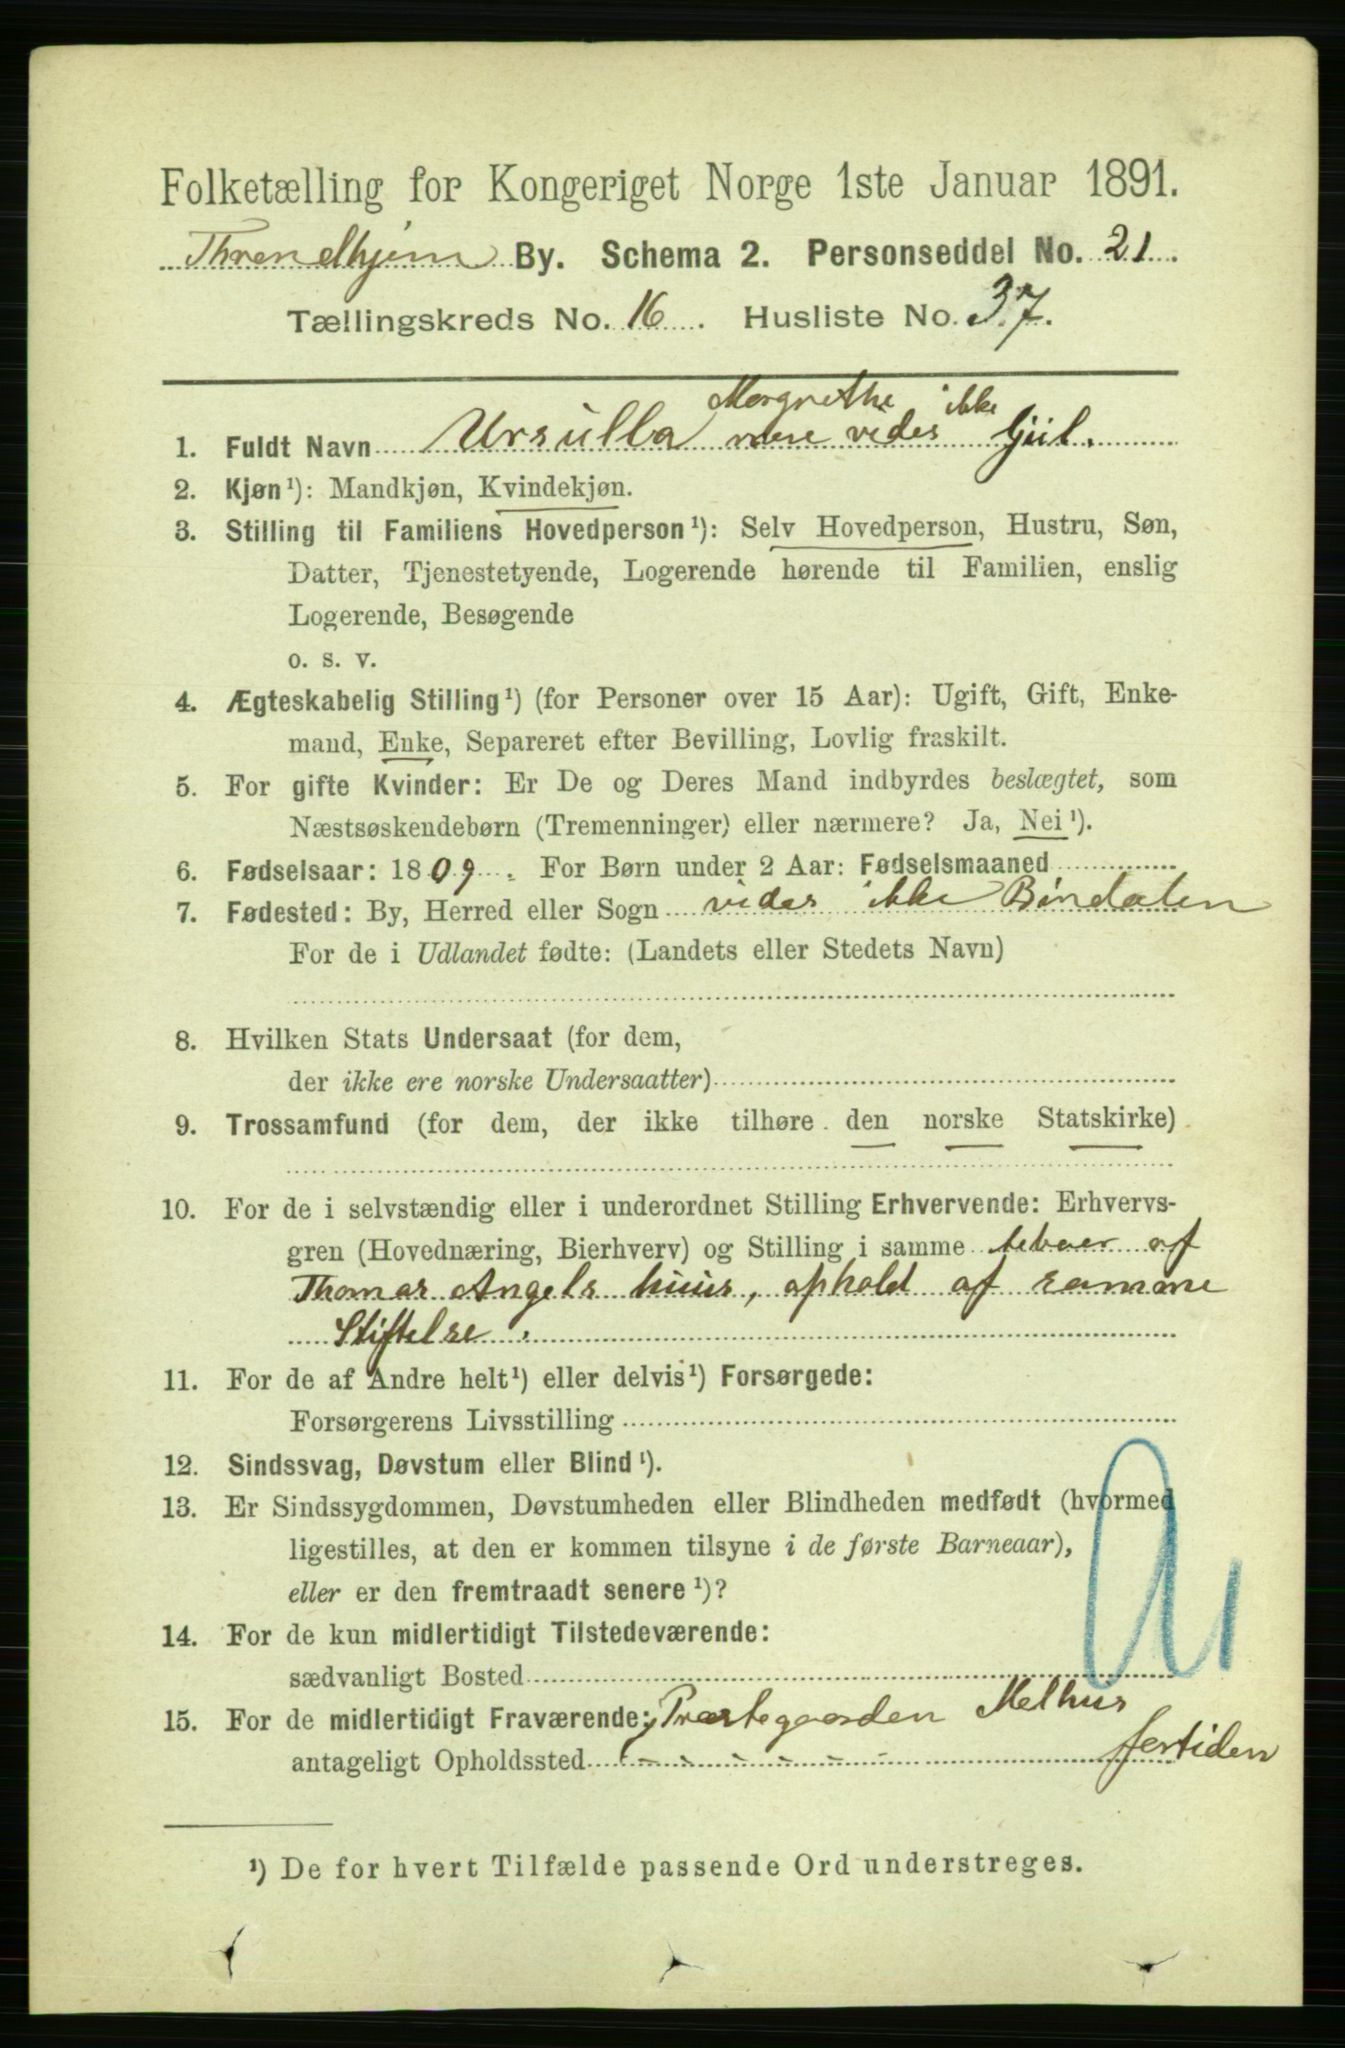 Folketælling for Kongeriget Norge 1ste Januar 1891.
Throndhjem By. Schema 2. Personseddel No. 21.
Tællingskreds No. 16. Husliste No. 37.
Margrethe ikke
1. Fuldt Navn Ursulla mere vides
2. Kjøn¹): Mandkjøn, Kvindekjøn.
3. Stilling til Familiens Hovedperson¹): Selv Hovedperson, Hustru, Søn,
Datter, Tjenestetyende, Logerende hørende til Familien, enslig
Logerende, Besøgende
o. s. v.
4. Ægteskabelig Stilling¹) (for Personer over 15 Aar): Ugift, Gift, Enke-
mand, Enke, Separeret efter Bevilling, Lovlig fraskilt.
5. For gifte Kvinder: Er De og Deres Mand indbyrdes beslægtet, som
Næstsøskendebørn (Tremenninger) eller nærmere? Ja, Nei¹).
6. Fødselsaar: 1809. For Børn under 2 Aar: Fødselsmaaned
7. Fødested: By, Herred eller Sogn vides ikke Bindalen
For de i Udlandet fødte: (Landets eller Stedets Navn)
8. Hvilken Stats Undersaat (for dem,
der ikke ere norske Undersaatter)
9. Trossamfund (for dem, der ikke tilhøre den norske Statskirke)
10. For de i selvstændig eller i underordnet Stilling Erhvervende: Erhvervs-
gren (Hovednæring, Bierhverv) og Stilling i samme beboer af
Thomas Angels huus, ophold af samme
Stiftelse.
11. For de af Andre helt¹) eller delvis¹) Forsørgede:
Forsørgerens Livsstilling
12. Sindssvag, Døvstum eller Blind¹).
13. Er Sindssygdommen, Døvstumheden eller Blindheden medfødt (hvormed
ligestilles, at den er kommen tilsyne i de første Barneaar),
eller er den fremtraadt senere¹)?
14. For de kun midlertidigt Tilstedeværende:
sædvanligt Bosted
15. For de midlertidigt Fraværende: Præstegaarden Melhus
antageligt Opholdssted fortiden
¹) De for hvert Tilfælde passende Ord understreges.